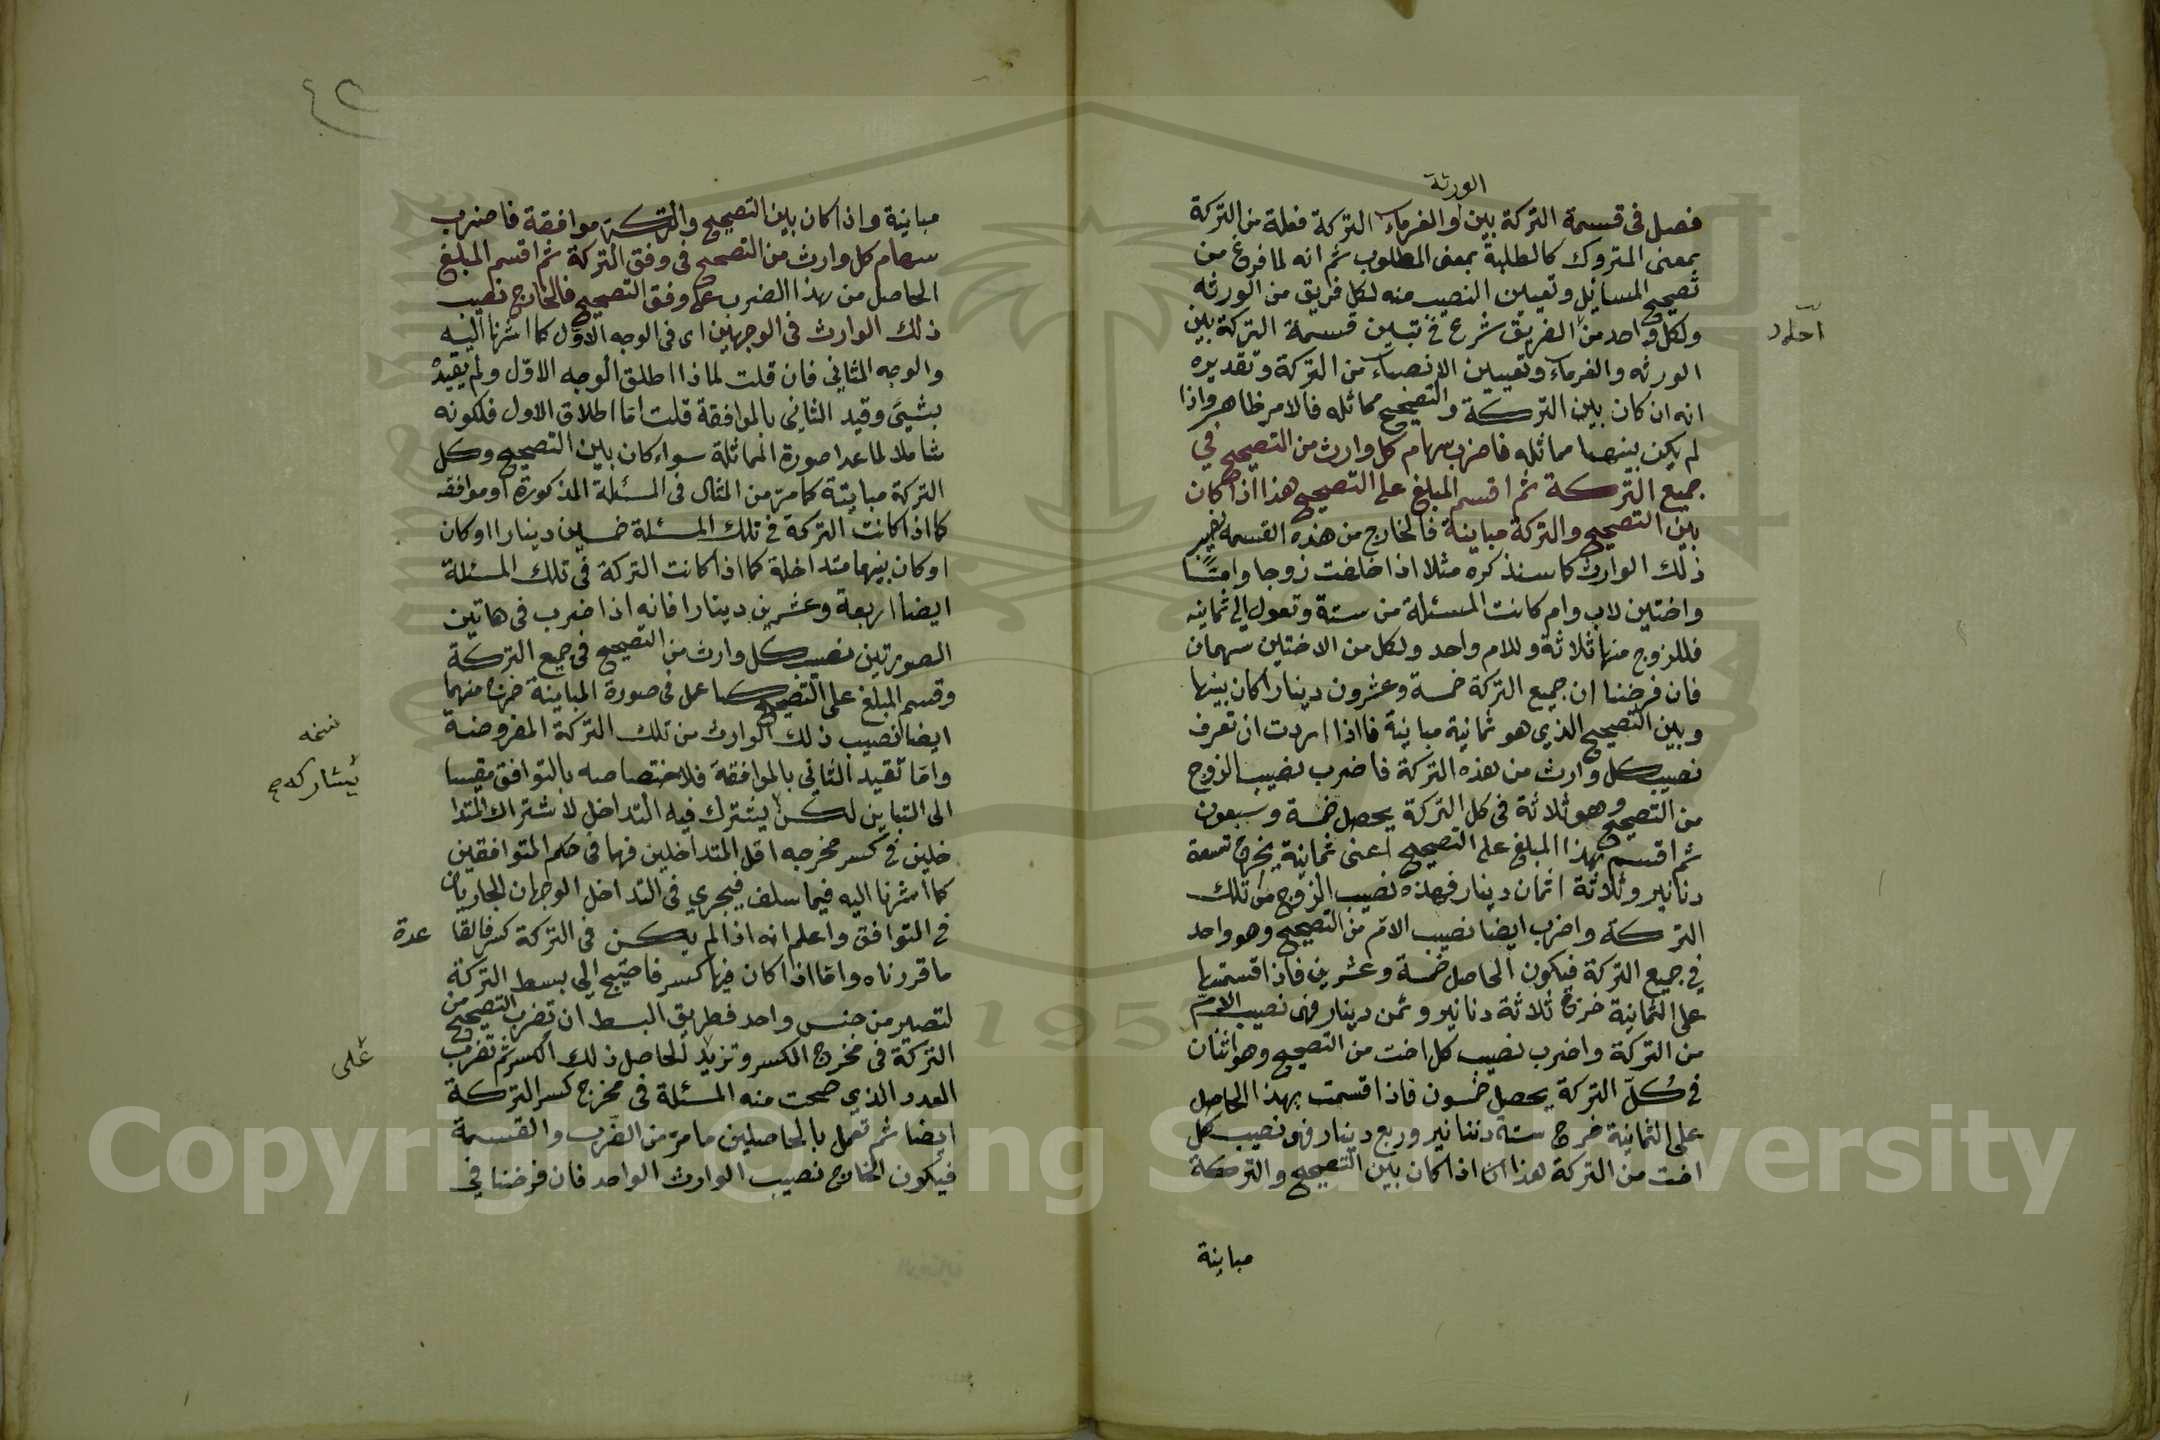 الورثة
فصل فى قسمة التركة بين والغرماء التركة فعلة من التركة
بمعنى المتروك كالطلبة بمعنى المطلوب ثم انه لما فرغ من
تصحيح المسائل وتعيين النصيب منه لكل فريق من الورثه
ولكل واحد من الفريق شرع فى تبيين قسمة التركة بين
الورثه والغرماء وتعيين الانصباء من التركة وتقديره
انه ان كان بين التركة والتصحيح مماثله فالامر ظاهر واذا
لم يكن بينهما مماثله فاضرب سهام كل وارث من التصحيح فى
جميع التركة ثم اقسم المبلغ على التصحيح هذا اذا كان
بين التصحيح والتركة مباينة فالخارج من هذه القسمه نصيب
ذلك الوارث كما سنذكره مثلا اذا خلفت زوجا واما
واختين لاب وام كانت المسئلة من ستة وتعول الى ثمانيه
فللزوج منها ثلاثة وللام واحد ولكل من الاختين سهمان
فان فرضنا ان جميع التركة خمسة وعشرون دينارا كان بينها
وبين التصحيح الذي هو ثمانية مباينة فاذا اردت ان تعرف
نصيب كل وارث من هذه التركة فاضرب نصيب الزوج
من التصحيح وهو ثلاثة فى كل التركة يحصل خمسة وسبعون
ثم اقسم بهذا المبلغ على التصحيح اعنى ثمانية يخرج تسعة
دنانير وثلاثة اثمان دينار فهذه نصيب الزوج من تلك
التركة واضرب ايضا نصيب الام من التصحيح وهو واحد
في جميع التركة فيكون الحاصل خمسة وعشرين فاذا قسمتها
على الثمانية خرج ثلاثة دنانير وثمن دينار فهى نصيب الام
من التركة واضرب نصيب كل اخت من التصحيح وهو اثنان
فى كل التركة يحصل خمسون فاذا قسمت بهذا الحاصل
على الثمانية خرج ستة دننانير وربع دينار فهى نصيب كل
اخت من التركة هذا اذا كان بين التصحيح والتركة
مباينة
٤٢
مباينة واذا كان بين التصحيح والتركة موافقة فاضرب
سهام كل وارث من التصحيح فى وفق التركة ثم اقسم المبلغ
الحاصل من بهذا الضرب على وفق التصحيح فالخارج نصيب
ذلك الوارث فى الوجهين اى فى الوجه الاول كما اشرنا اليه
والوجه الثاني فان قلت لماذا اطلق الوجه الاول ولم يقيده
بشيئ وقيد الثانى بالموافقة قلت اما اطلاق الاول فلكونه
شاملا لما عدا صورة المماثلة سواء كان بين التصحيح وكل
التركة مباينة كما مر من المثال فى المسئلة المذكورة او موافقه
كما اذا كانت التركة فى تلك المسئلة خمسين دينارا اوكان
اوكان بينهما متداخلة كما اذا كانت التركة فى تلك المسئلة
ايضا اربعة وعشرين دينارا فانه اذا ضرب فى هاتين
الصورتين نصيب كل وارث من التصحيح فى جميع التركة
وقسم المبلغ على التصحيح كما عمل فى صورة المباينة خرج منهما
ايضا نصيب ذلك الوارث من تلك التركة المفروضة
واما تقييد الثاني بالموافقة فلاختصاصه بالتوافق مقيسا
الى التباين لكن يشترك فيه التداخل لاشتراك المتدا
خلين فى كسر مخرجه اقل المتداخلين فهما فى حكم المتوافقين
كما اشرنا اليه فيما سلف فيجري فى التداخل الوجهان الجاريان
فى التوافق واعلم انه اذا لم يكن فى التركة كسر فالقا عدة
ما قررناه واما اذا كان فيها كسر فاحتيج الى بسط التركة
لتصير من جنس واحد فطريق البسط ان تضرب التصحيح من
التركة فى مخرج الكسر وتزيد الحاصل ذلك الكسر ثم تضرب
العدد الذي صحت منه المسئلة فى مخرج كسر التركة
ايضا ثم تعمل بالحاصلين ما مر من الضرب والقسمة
فيكون الخارج نصيب الوارث الواحد فان فرضنا في
نسخه
يشاركه
على
Copyright © King Saud University
1957